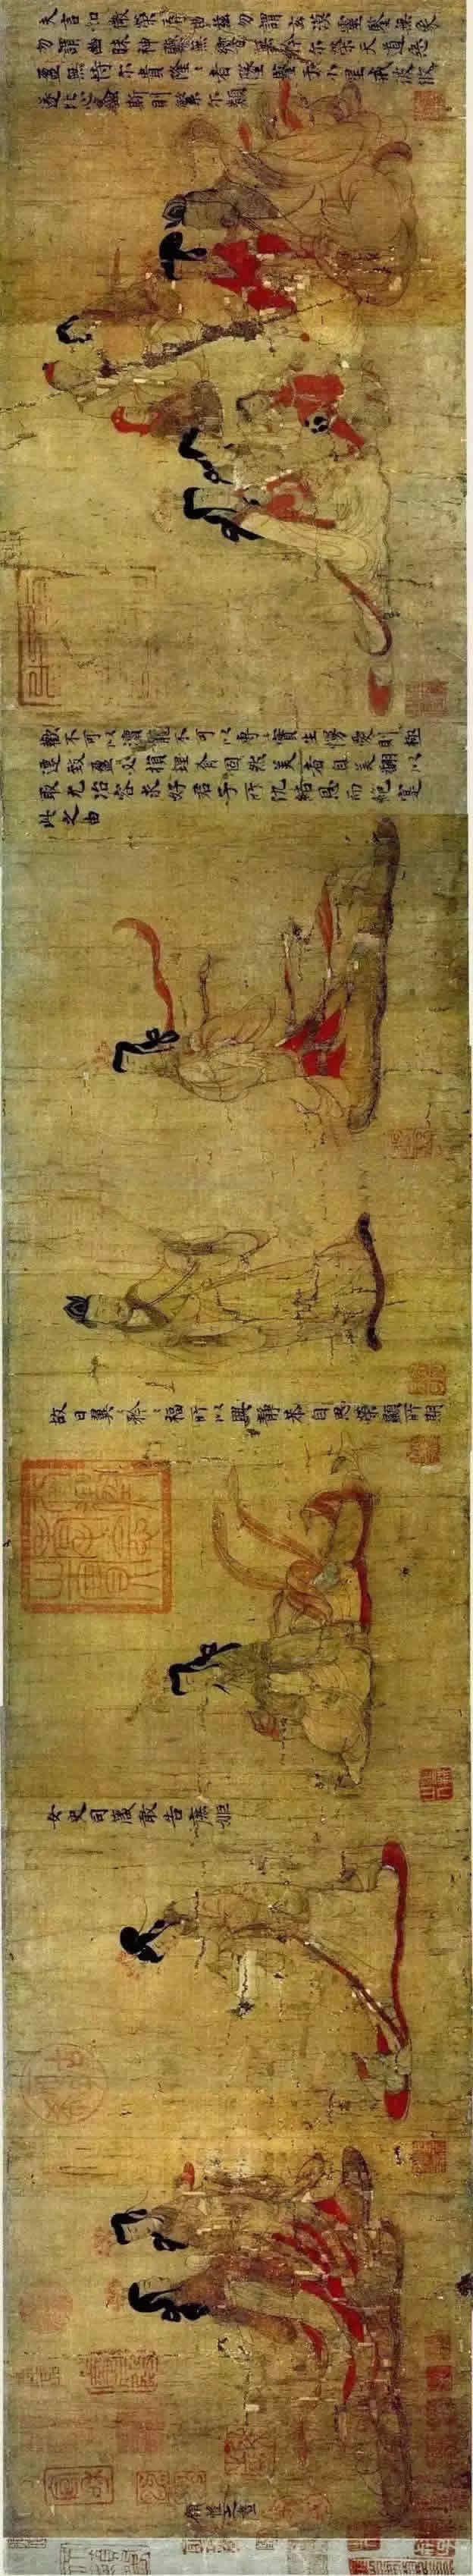 夫言如微榮辱由茲勿謂玄漠靈鑒無象
勿謂幽昧神聽無響無矜尓榮天道惡
盈無恃尓貴隆〻者墜鑒于小星戒彼攸
遂比心螽斯則繁尓類
歡不可以瀆寵不可以專〻實生慢愛則極
遷致盈必損理有固然美者自美翩以
取尤冶容求好君子所仇結恩而絕寔
此之由
故曰翼〻矜〻福所以興靜恭自思榮顯所期
女史司箴敢告庶姬
顧愷之畫